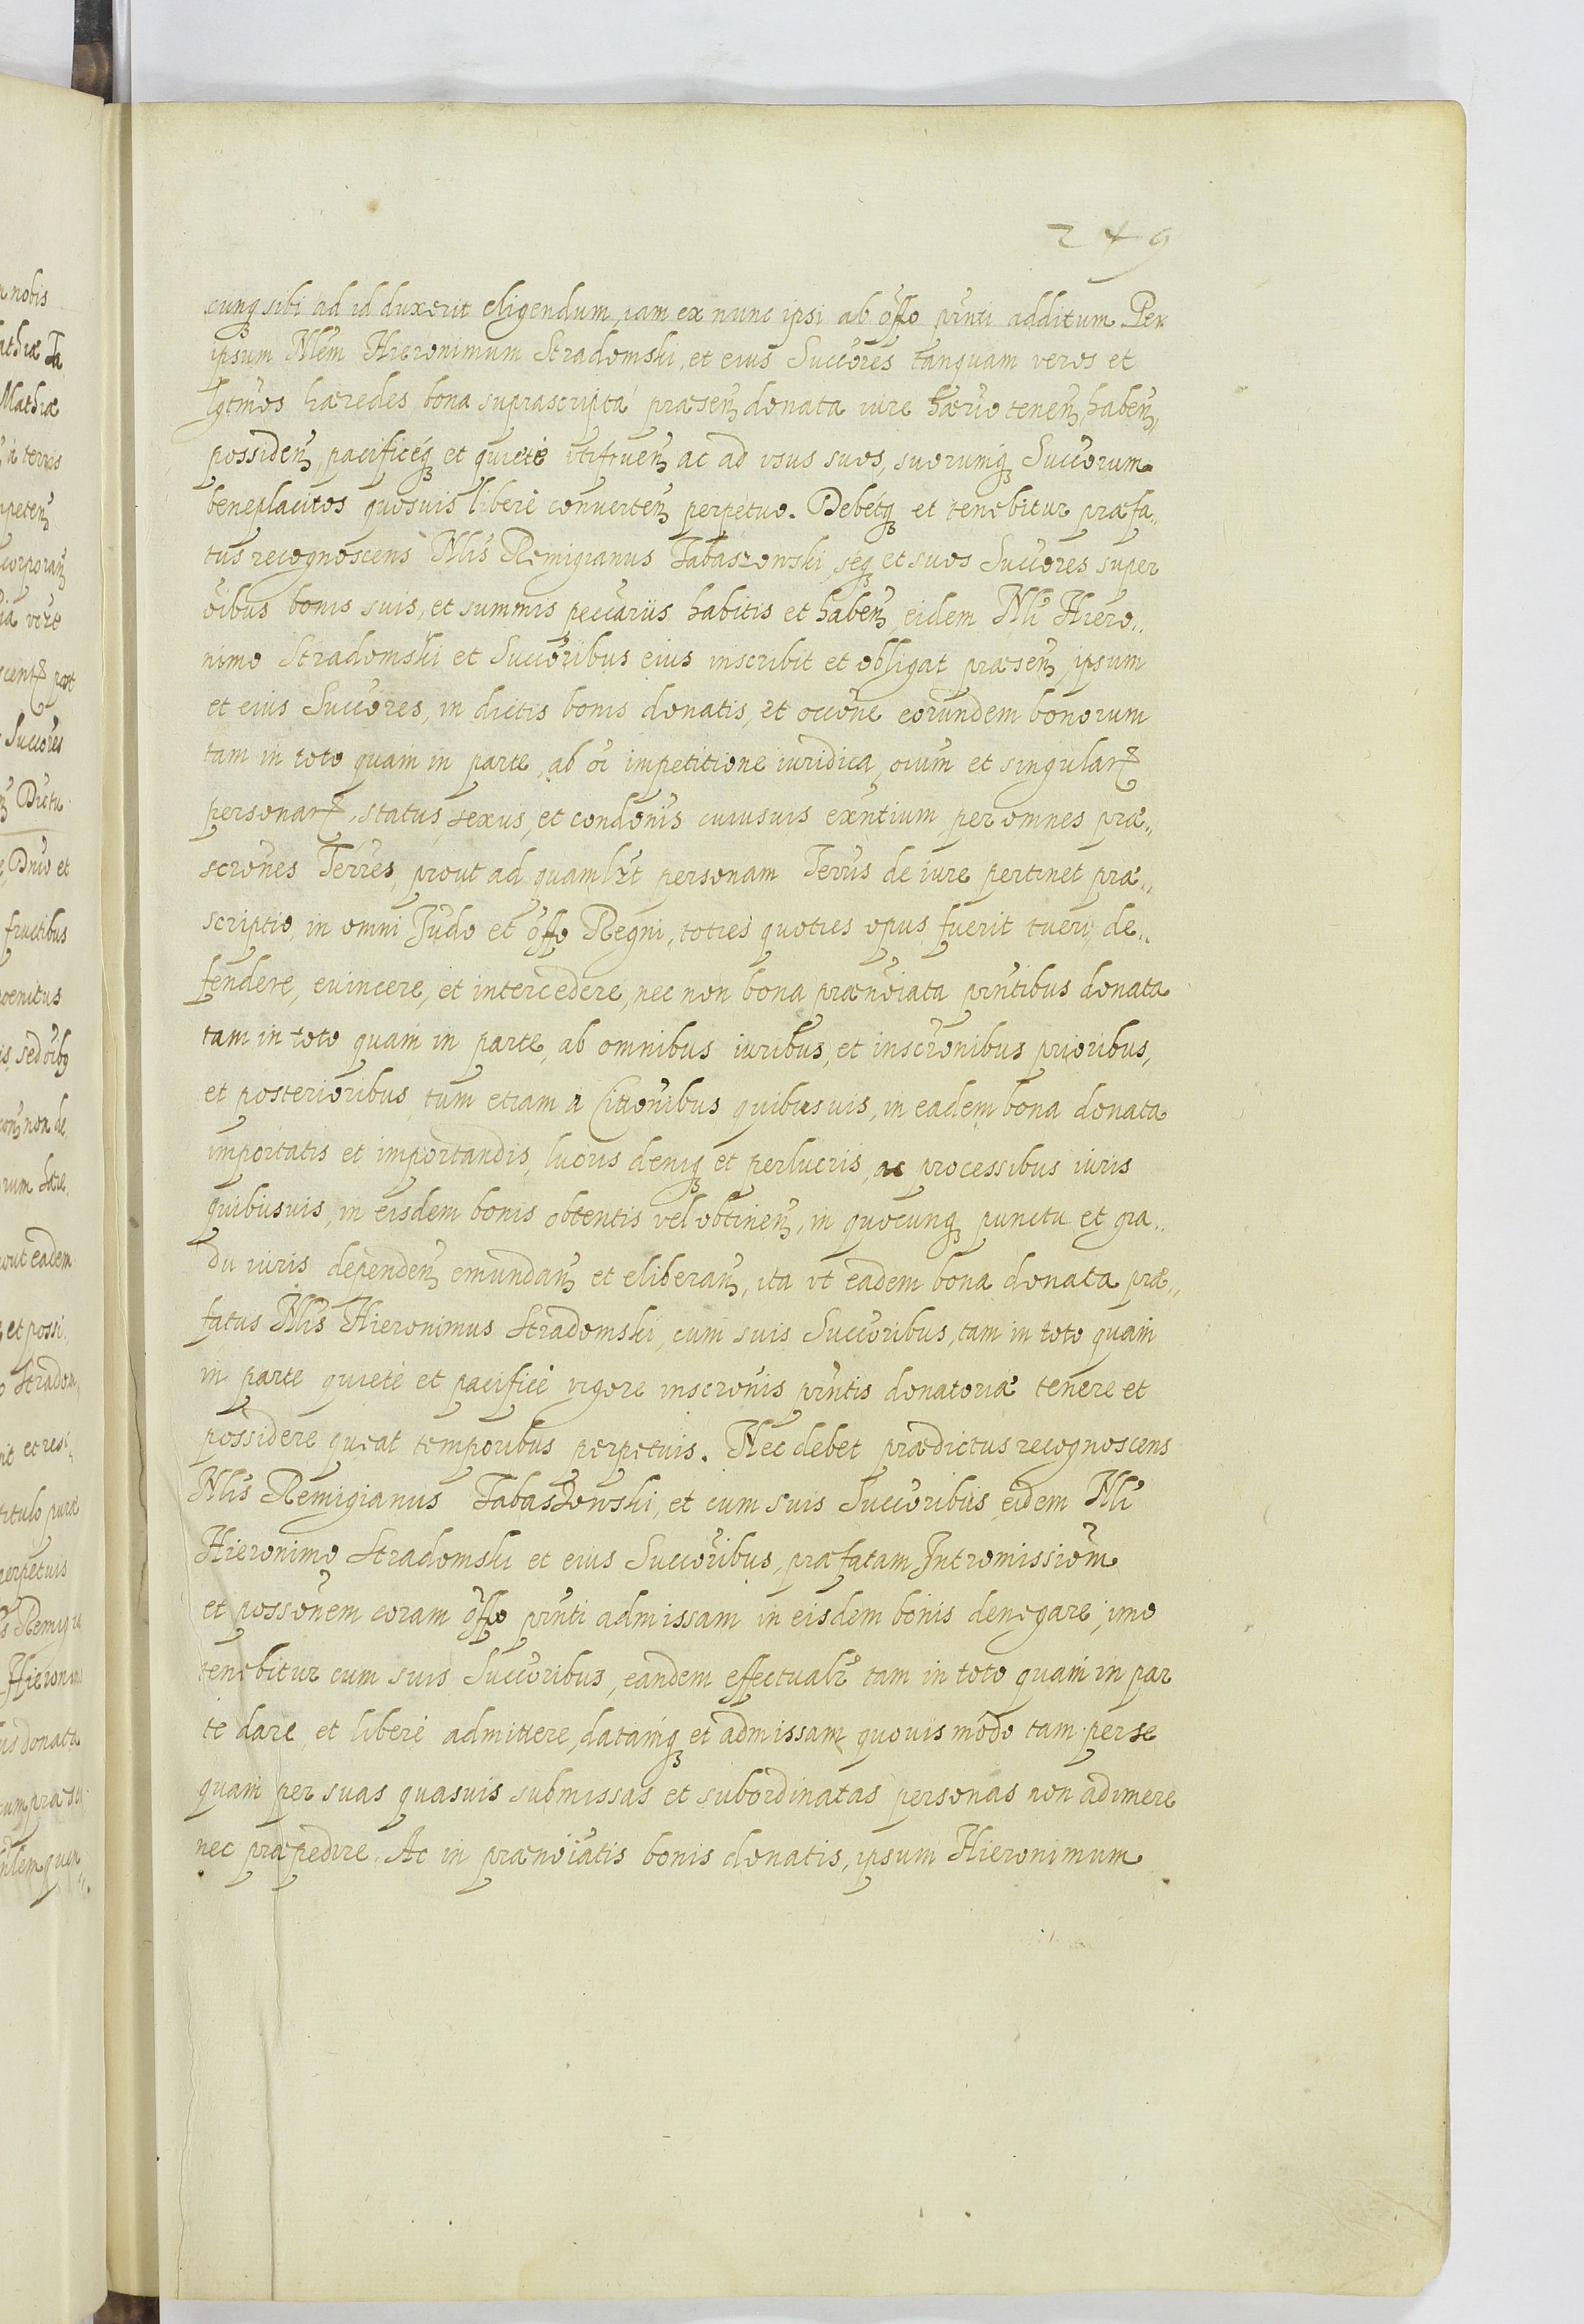 249
cunq₃ sibi ad id duxerit eligendum, iam ex nunc ipsi ab offo pñti additum. Per
ipsum Nlem Hieronimum Stradomski, et eius Succores tanquam veros et
lgtmos hæredes bona suprascripta præsen₃ donata iure hærio tenen₃, haben₃,
possiden₃, pacificeq₃ et quietè utifruen₃ ac ad usus suos, suorumq₃ Succorum
beneplacitos quosuis liberè conuerten₃ perpetuo. Debetq₃ et tenebitur præfa„
tus recognoscens Nlis Remigianus Tabaszowski, seq₃ et suos Succores super
oibus bonis suis, et summis peccariis habitis et haben₃ eidem Nli Hiero„
nimo Stradomski et Succoribus eius inscribit et obligat præsen₃ ipsum
et eius Succores, in dictis bonis donatis, et occone eorundem bonorum
tam in toto quam in parte, ab oi impetitione iuridica, oium et singular
personar, status sexus, et condonis cuiusuis exntium, per omnes præ„
scrones Terres, prout ad quamlzt personam Terris de iure pertinet præ„
scriptio, in omni Judo et offo Regni, toties quoties opus fuerit tueri, de„
fendere, euincere, et intercedere, nec non bona prænoiata pñtibus donata
tam in toto quam in parte, ab omnibus iuribus, et inscronibus prioribus,
et posterioribus tum etiam à Citionibus quibusuis, in eadem bona donata
importatis et importandis, lucris deniq₃ et perlucris, ac processibus iuris
quibusuis, in eisdem bonis obtentis vel obtinen₃, in quocunq₃ punctu et gra„
du iuris dependen₃ emundan₃ et eliberan₃, ita ut eadem bona donata præ„
fatus Nlis Hieronimus Stradomski, cum suis Succoribus, tam in toto quam
in parte quietè et pacificè vigore inscronis pñtis donatoriæ tenere et
possidere queat temporibus perpetuis. Nec debet prædictus recognoscens
Nlis Remigianus Tabaszowski, et cum suis Succoribus eidem Nli
Hieronimo Stradomski et eius Succoribus, præfatam Intromissiom
et possonem coram offo pñti admissam in eisdem bonis denegare; imo
tenebitur cum suis Succoribus, eandem effectualr tam in toto quam in par
te dare et liberè admittere, datamq₃ et admissam quouis modo tam per se
quam per suas quasuis submissas et subordinatas personas non adimere
nec præpedire. Ac in prænoiatis bonis donatis, ipsum Hieronimum